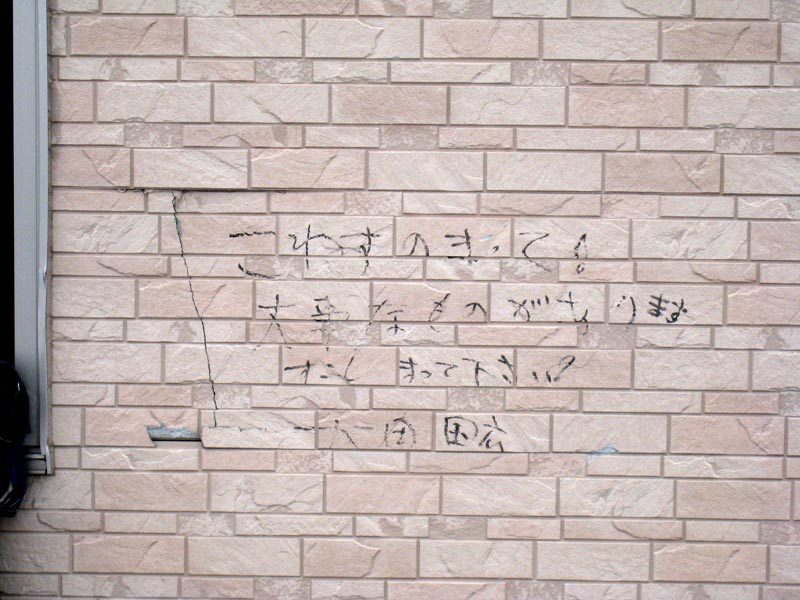 こわすのまって！
大事なものがあります
すこし まって下さい！